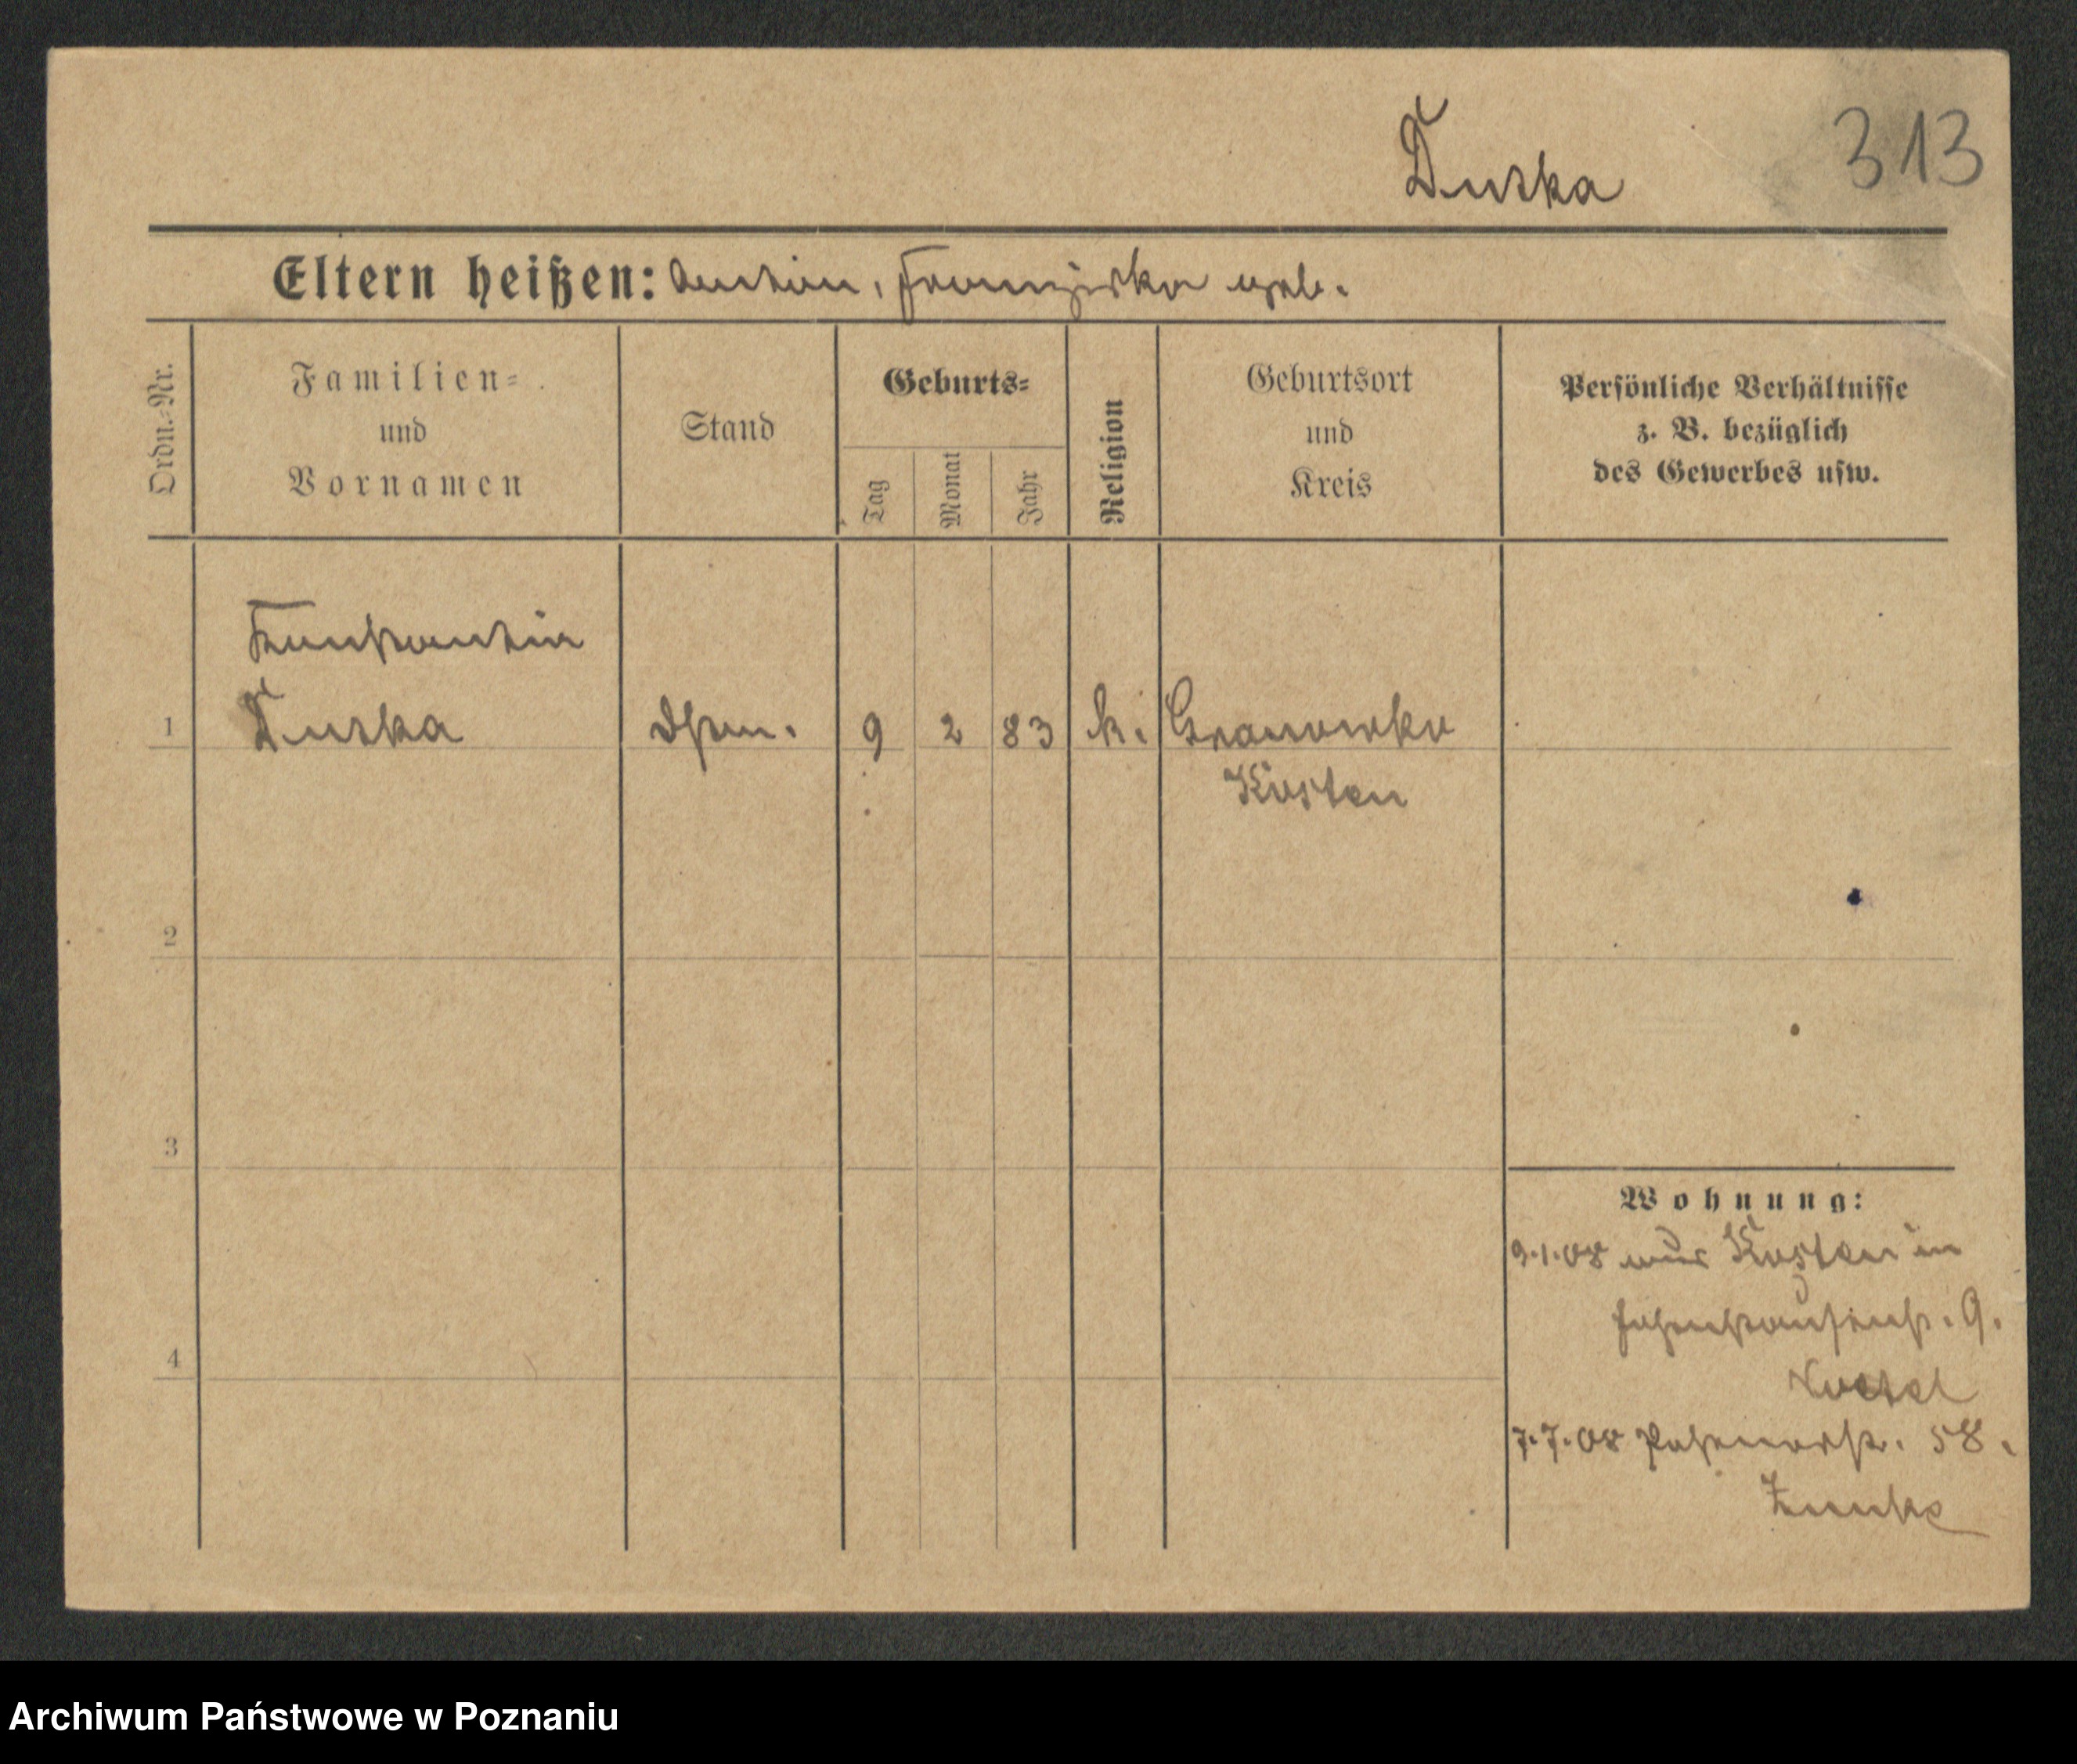 313
Duska
Eltern heißen: Anton, Franziska geb.
Ordn.-Nr.
Familien-
und
Vornamen
Stand
Geburts-
Tag
Monat
Jahr
Religion
Geburtsort
und
Kreis
Persönliche Verhältnisse
z. B. bezüglich
des Gewerbes usw.
Konstantin
1 Duska 9 2 83 k. Granowko
Kosten
2
3
4
Wohnung:
9.1.08 aus Kosten in
7.7.08 Posenerstr. 58.
Archiwum Państwowe w Poznaniu